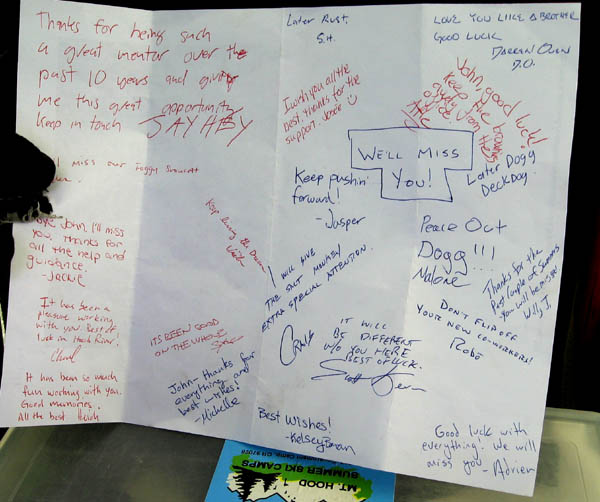 Thanks for being such
a great mentor over the
past 10 years and giving
me this great opportunity
Keep in touch JAYHBY
Later Rust.
S.H.
LOVE YOU LIKE A BROTHER
GOOD LUCK
D.O.
I wish you all the
best, thanks for the
support. José
John, good luck!
Keep the
away from
the
WE'LL MISS
YOU!
Later Dogg
DeckDog.
miss our foggy
Keep pushin'
forward!
-Jasper
Keep living the Dream
Peace Out
Dogg!!!
Malone
John, I'll miss
you. Thanks for
all the help and
guidance.
-Jackie
I WILL GIVE
THE SALT MONKEY
EXTRA SPECIAL ATTENTION.
Thanks for the
Past Couple of Summers
you will be missed
Willy J.
It has been a
pleasure working
with you. Best of
luck in Hood River!
IT'S BEEN GOOD
ON THE WHOLE
IT WILL
BE DIFFERENT
W/O YOU HERE
BEST OF LUCK.
Scott
DON'T FLIP OFF
YOUR NEW CO-WORKERS!
It has been so much
fun working with you.
Good memories.
All the best
John- thanks for
everything and
best wishes!
-Michelle
Best Wishes!
Good luck with
everything. We will
miss you - Adrien
MT. HOOD
SUMMER SKI CAMPS